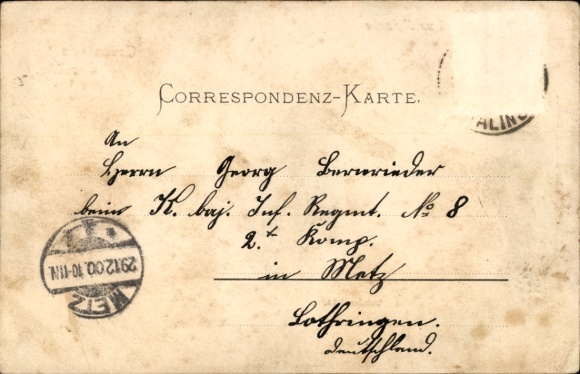 CORRESPONDENZ-KARTE.
ALING
An
Herrn Georg Berwieder
beim K. baj. Inf. Regmt. No 8
2.t Komp.
in Metz
Lothringen.
Deutschland.
METZ
29.12.00.10-11N.